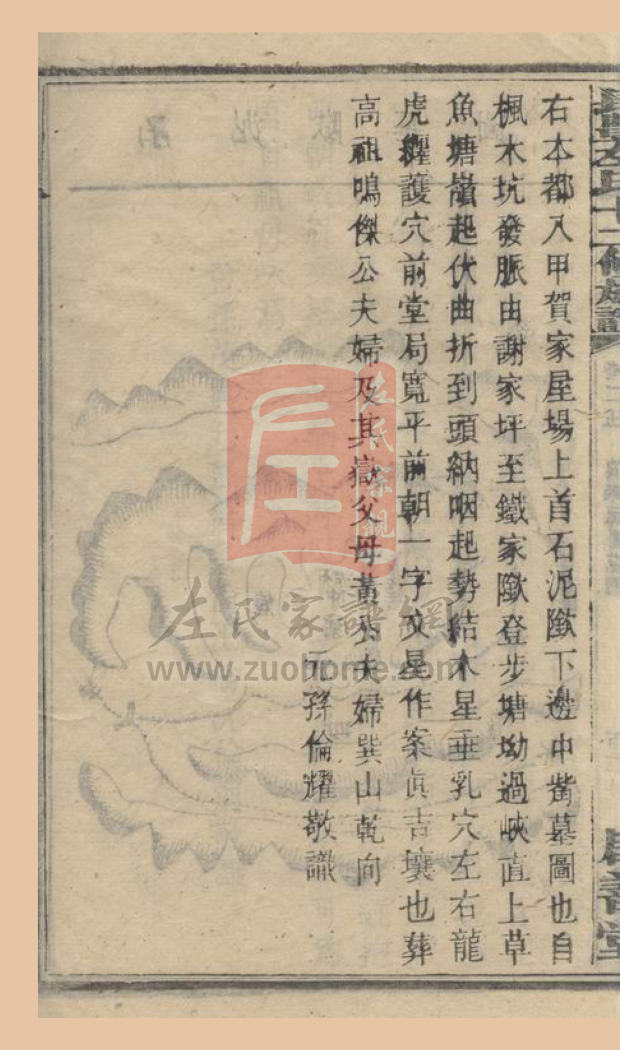 右本都八甲賀家屋場上首石泥𡑞下邊中嘴墓圖也自
楓木坑發脈由謝家坪至鐵家𡑞登步塘坳過峽直上草
魚塘嶺起伏曲折到頭納咽起勢結木星垂乳穴左右龍
虎纏護穴前堂局寬平前朝一字文星作案眞吉壤也葬
高祖鳴傑公夫婦及其嶽父母黃公夫婦巽山乾向
元孫倫耀敬識
左氏家譜網
www.zuohome.com